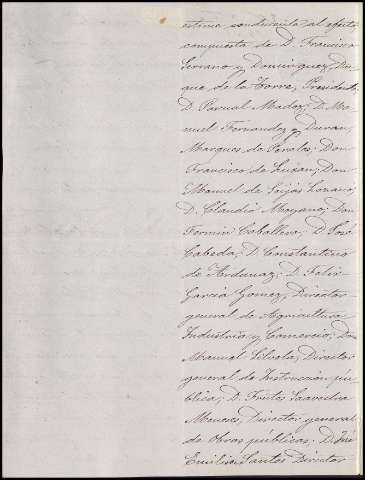 estima conducente al efecto
compuesta de D. Francisco
Serrano y Dominguez, Du-
que de la Torre, Presidente;
D. Pascual Madoz; D. Ma-
nuel Fernandez y Duran,
Marques de Perales; Don
Francisco de Luxan; Don
Manuel de Seijas Lozano;
D. Claudio Moyano; Don
Fermin Caballero; D. José
Caveda; D. Constantino
de Ardanaz; D. Felix
Garcia Gomez, Director
general de Agricultura
Industria y Comercio; Don
Manuel Silvela, Director
general de Instruccion pú-
blica; D. Frutos Saavedra
Meneses, Director general
de Obras públicas; D. José
Emilio Santos Director